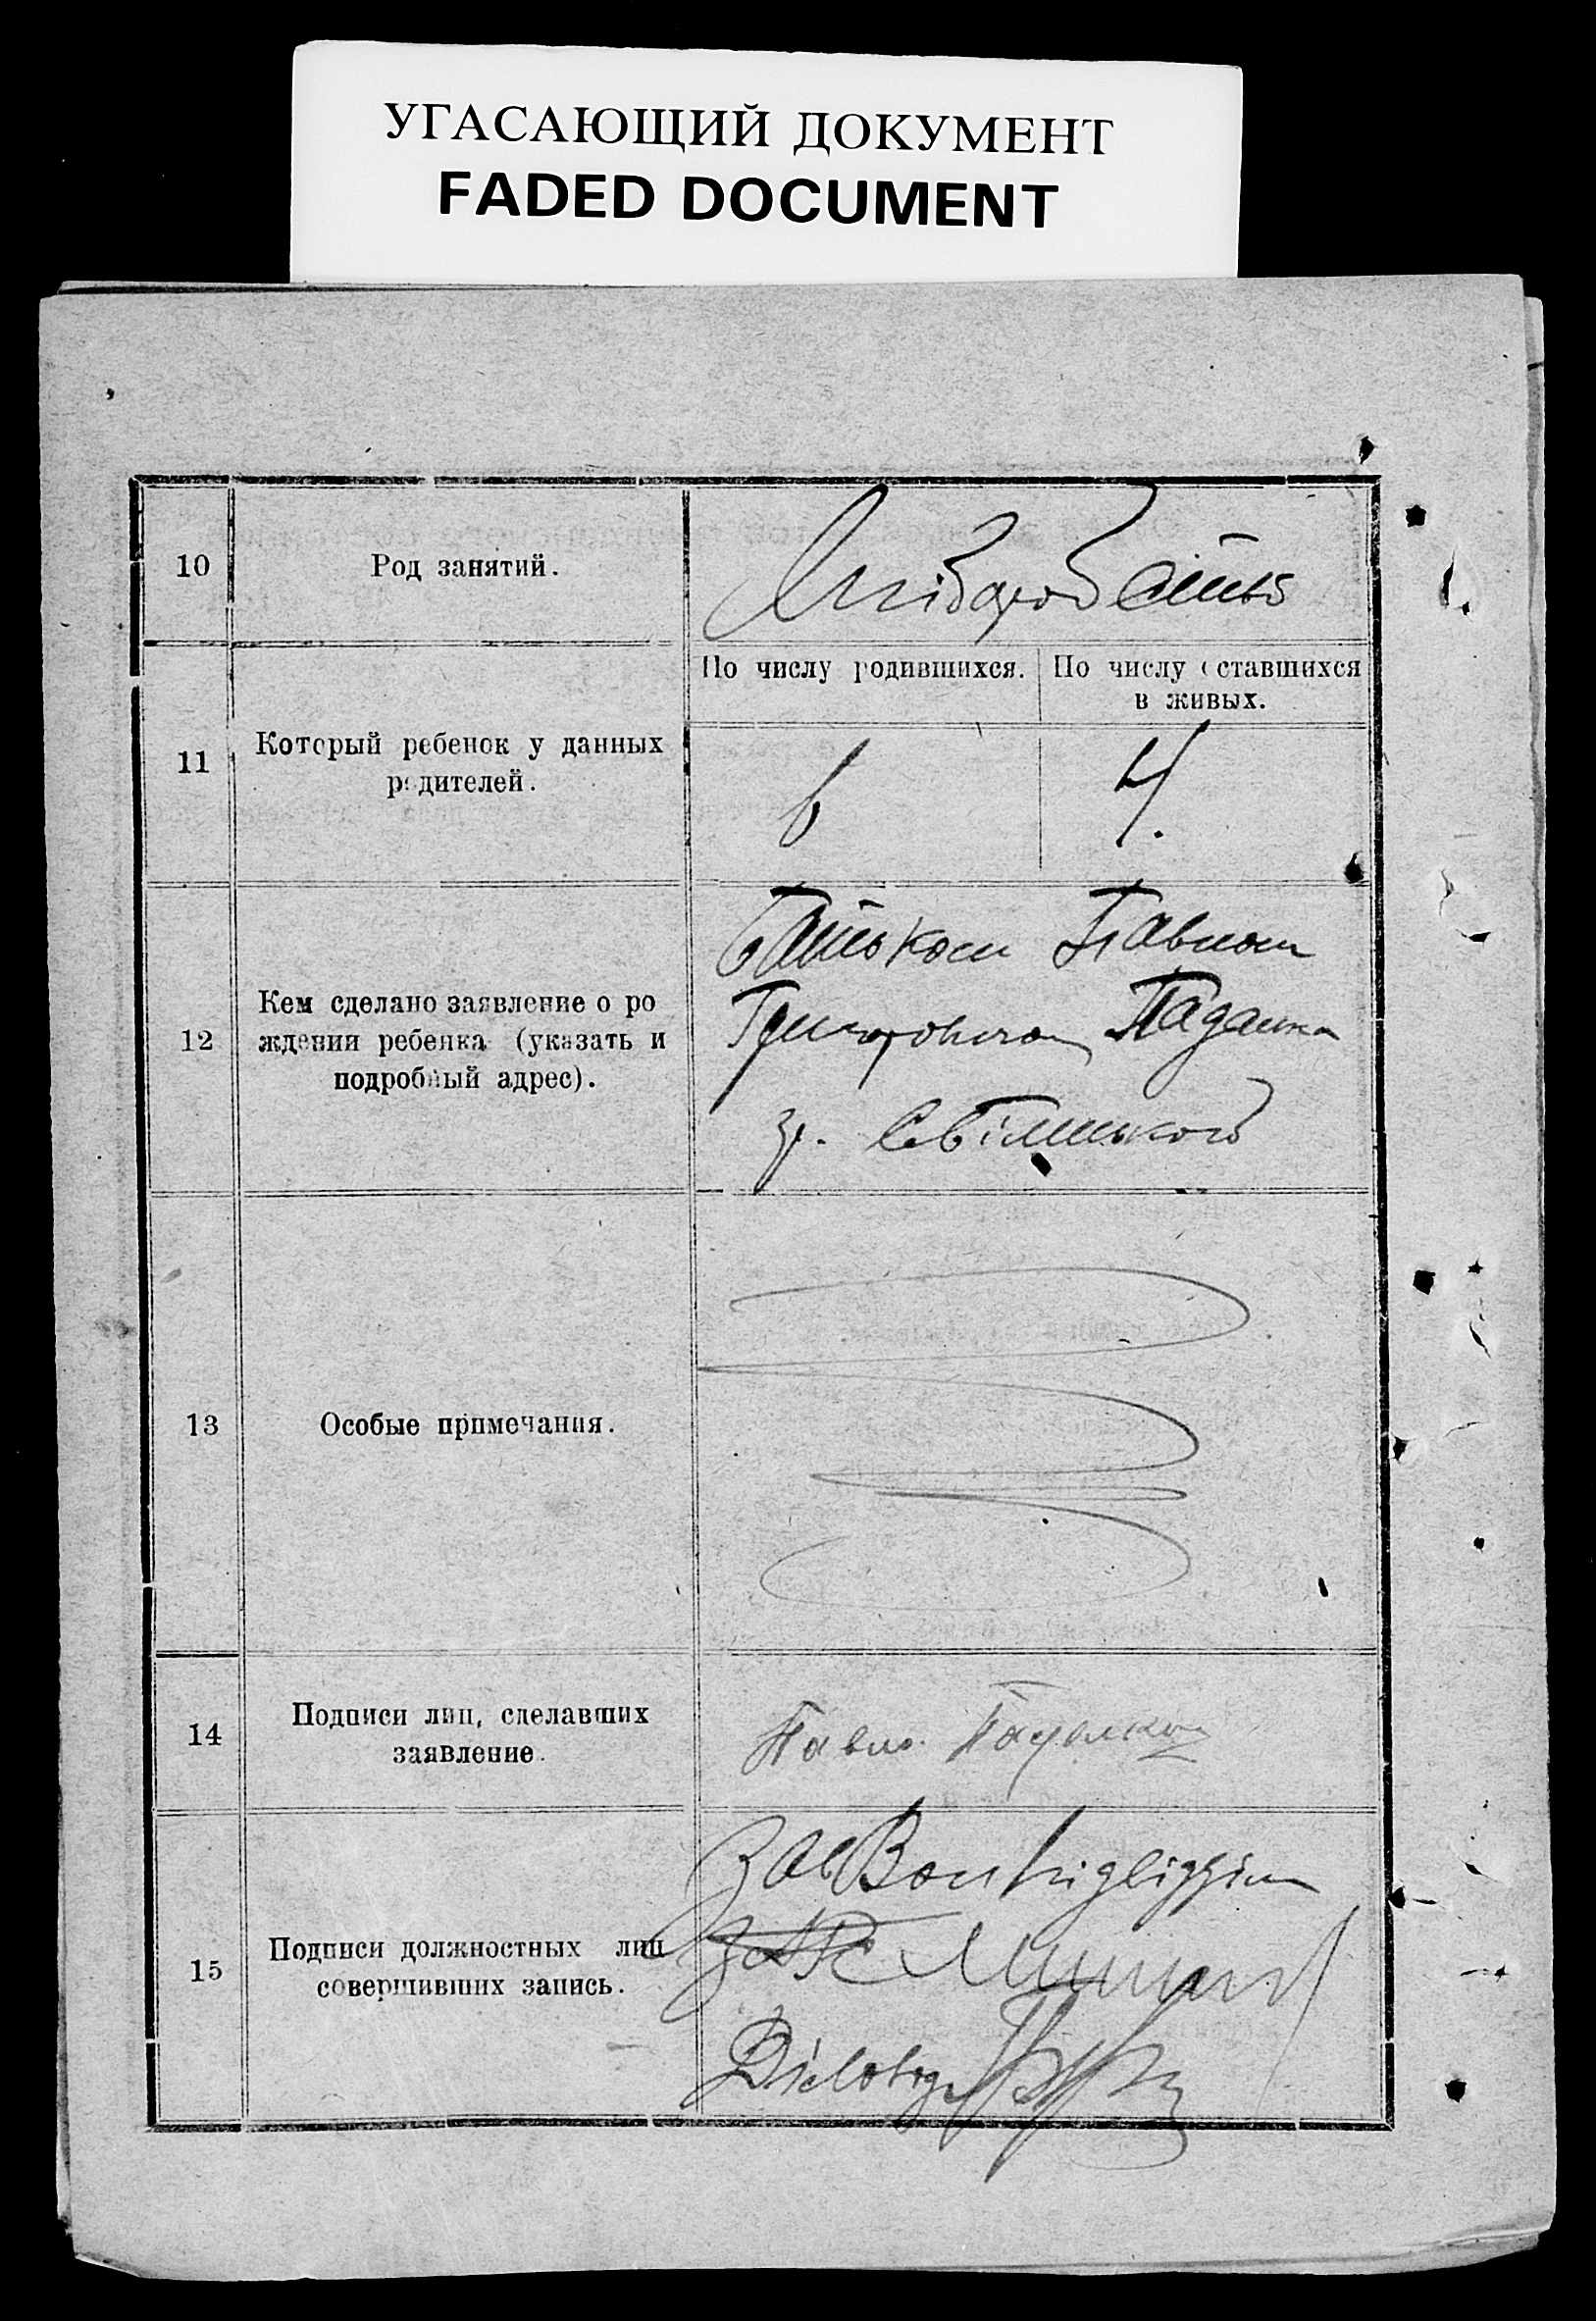 УГАСАЮЩИЙ ДОКУМЕНТ
FADED DOCUMENT
10
Род занятий.
Хлібороб
11
Который ребенок у данных
родителей.
По числу родившихся.
По числу оставшихся
в живых.
6
4.
12
Кем сделано заявление о ро
ждении ребенка (указать и
подробный адрес).
Батьком Павлом
Григоровичом Падалка
гр.
13
Особые примечания.
14
Подписи лиц, сделавших
заявление.
Павло Падалка
15
Подписи должностных лиц
совершивших запись.
Зав
Діловод